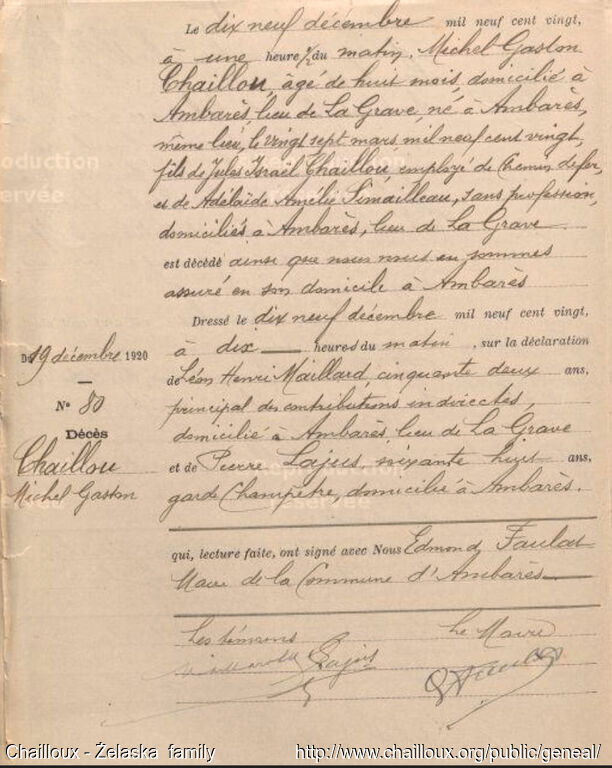 Le dix neuf décembre mil neuf cent vingt,
à une heure ½ du matin, Michel Gaston
Chaillou, âgé de huit mois, domicilié à
Ambarès, lieu de La Grave, né à Ambarès,
même lieu, le vingt sept mars mil neuf cent vingt,
fils de Jules Israël Chaillou, employé de Chemin de fer,
et de Adélaïde Amélie Simailleau, sans profession,
domiciliés à Ambarès, lieu de La Grave
est décédé ainsi que nous nous en sommes
assuré en son domicile à Ambarès
Dressé le dix neuf décembre mil neuf cent vingt,
à dix heures du matin, sur la déclaration
de Léon Henri Maillard, cinquante deux ans,
principal des contributions indirectes,
domicilié à Ambarès, lieu de La Grave
et de Pierre Lajus, soixante huit ans,
garde Champêtre, domicilié à Ambarès.
qui, lecture faite, ont signé avec Nous Edmond
Maire de la Commune d'Ambarès
Les témoins Le Maire
Lajus
Du 19 décembre 1920
N° 80
Décès
Chaillou
Michel Gaston
production
servée
Chailloux - Želaska family http://www.chailloux.org/public/geneal/